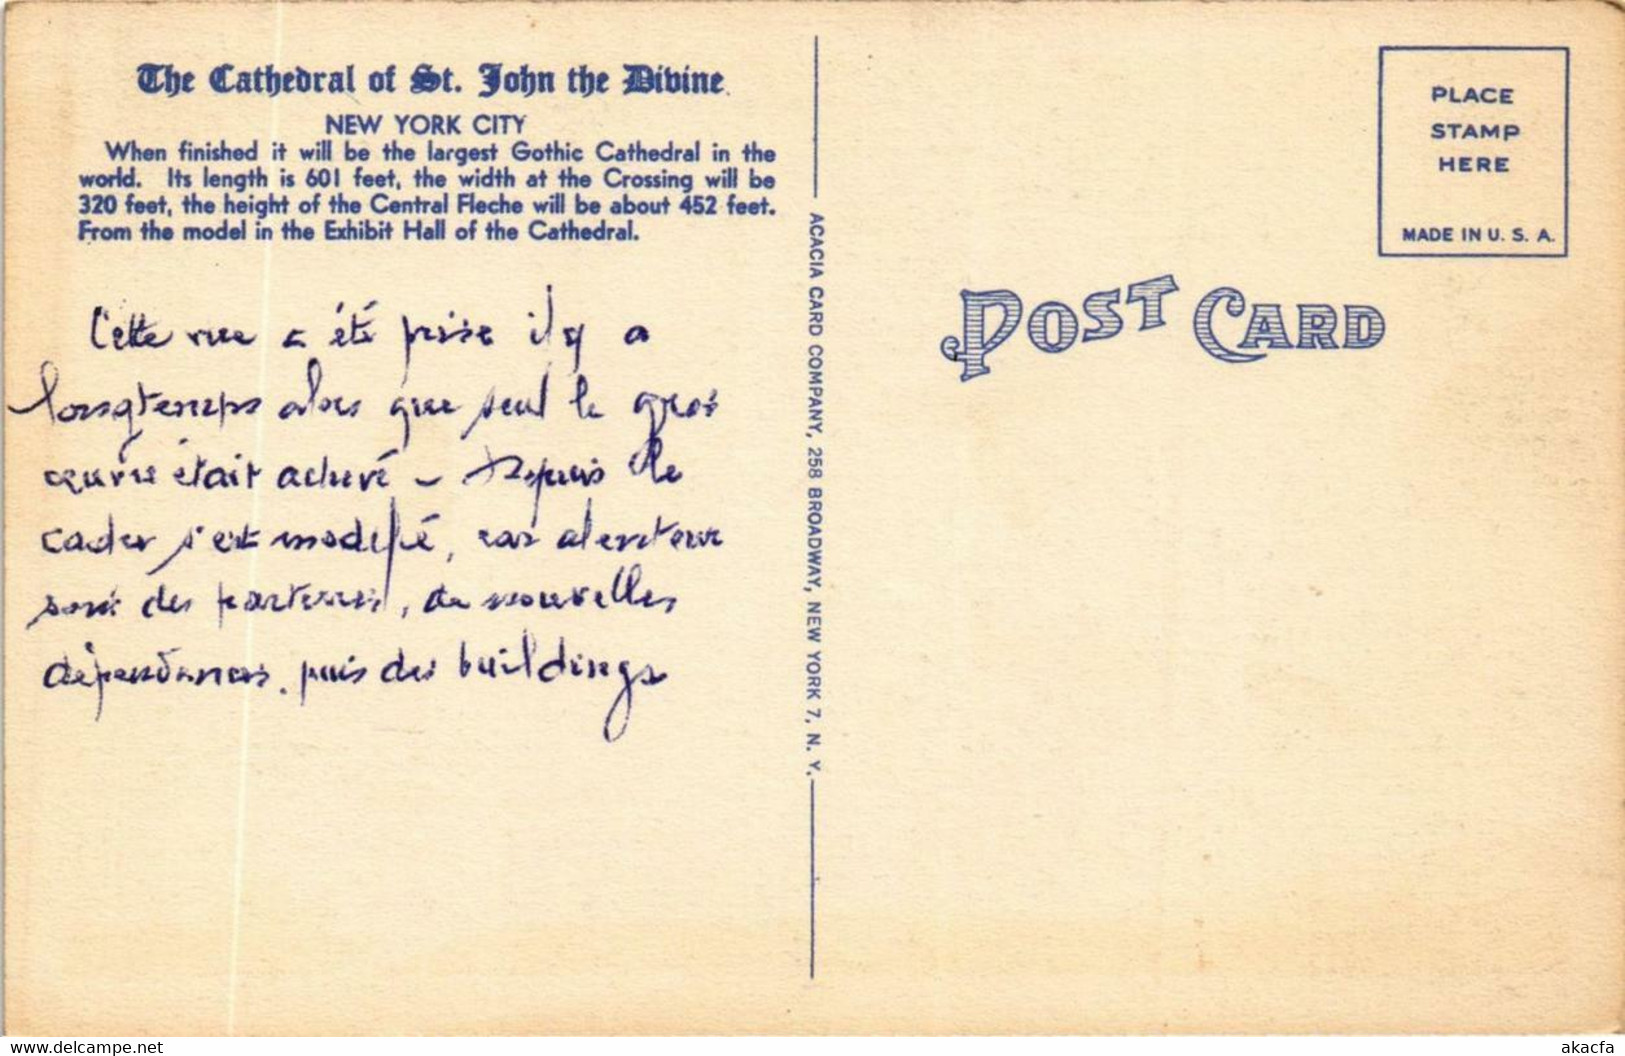 The Cathedral of St. John the Divine
NEW YORK CITY
When finished it will be the largest Gothic Cathedral in the
world. Its length is 601 feet, the width at the Crossing will be
320 feet, the height of the Central Fleche will be about 452 feet.
From the model in the Exhibit Hall of the Cathedral.
Cette vue a été prise il y a
longtemps alors que seul le gros
œuvre était achevé - Depuis le
cadre s'est modifié, car alentour
sont des parterres, de nouvelles
dépendances, puis des buildings
ACACIA CARD COMPANY, 258 BROADWAY, NEW YORK 7, N. Y.
PLACE
STAMP
HERE
MADE IN U. S. A.
POST CARD
www.delcampe.net
akacfa